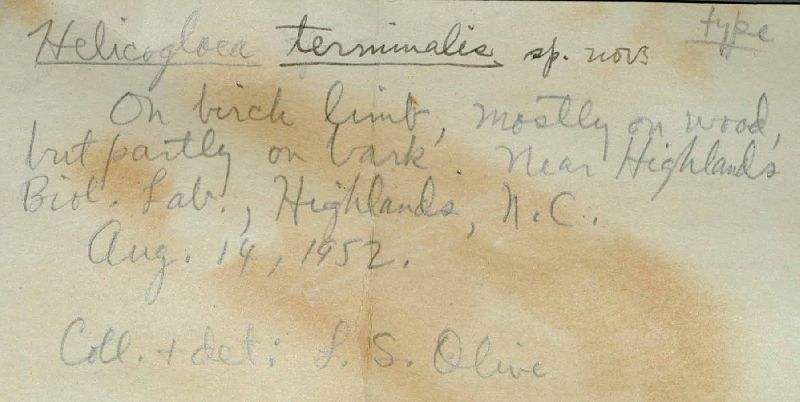 type
Helicogloea terminalis sp. nov.
On birch limb, mostly on wood,
but partly on bark. Near Highlands
Biol. Lab., Highlands, N.C.
Aug. 14, 1952.
Coll. + det: L. S. Olive